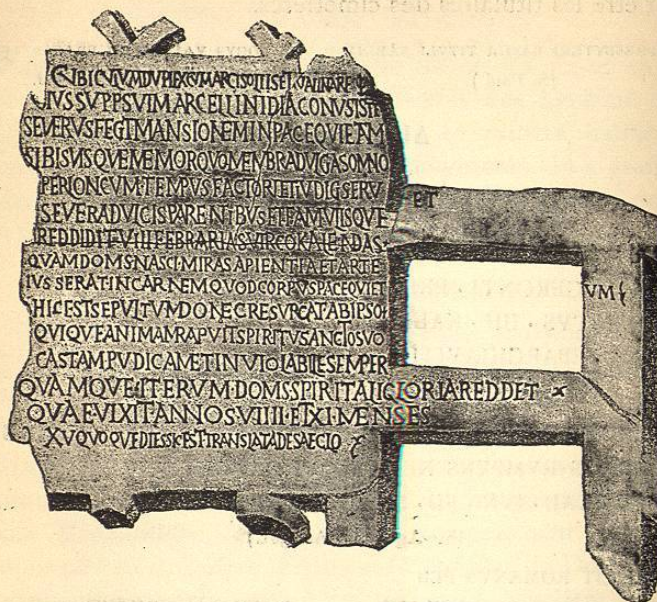 être les titulaires des cimetières.
CVBICVLVM DVPLEX CVM ARCISOLIIS ET LVMINARE
IVSSV PP SVI MARCELLINI DIACONVS ISTE
SEVERVS FECIT MANSIONEM IN PACE QVIETAM
SIBI SVISQVE MEMOR QVO MEMBRA DVLCIA SOMNO
PER LONCVM TEMPVS FACTORI ET IVDICI SERV ET
SEVERA DVLCIS PARENTIBVS ET FAMVLISQVE
REDDIDIT VIII FEBRARIAS VIRCO KALENDAS
QVAM DOMS NASCI MIRA SAPIENTIA ET ARTE
IVSSERAT IN CARNEM QVOD CORPVS PACE QVIET VM
HIC EST SEPVLTVM DONEC RESVRCAT AB IPSO
QVIQVE ANIMAM RAPVIT SPIRITV SANCTO SVO
CASTAM PVDICAM ET INVIOLABILE SEMPER
QVAMQVE ITERVM DOMS SPIRITALI CLORIA REDDET
QVAE VIXIT ANNOS VIIII ET XI MENSES
XV QVOQVE DIES SIC EST TRANSLATA DE SAECLO